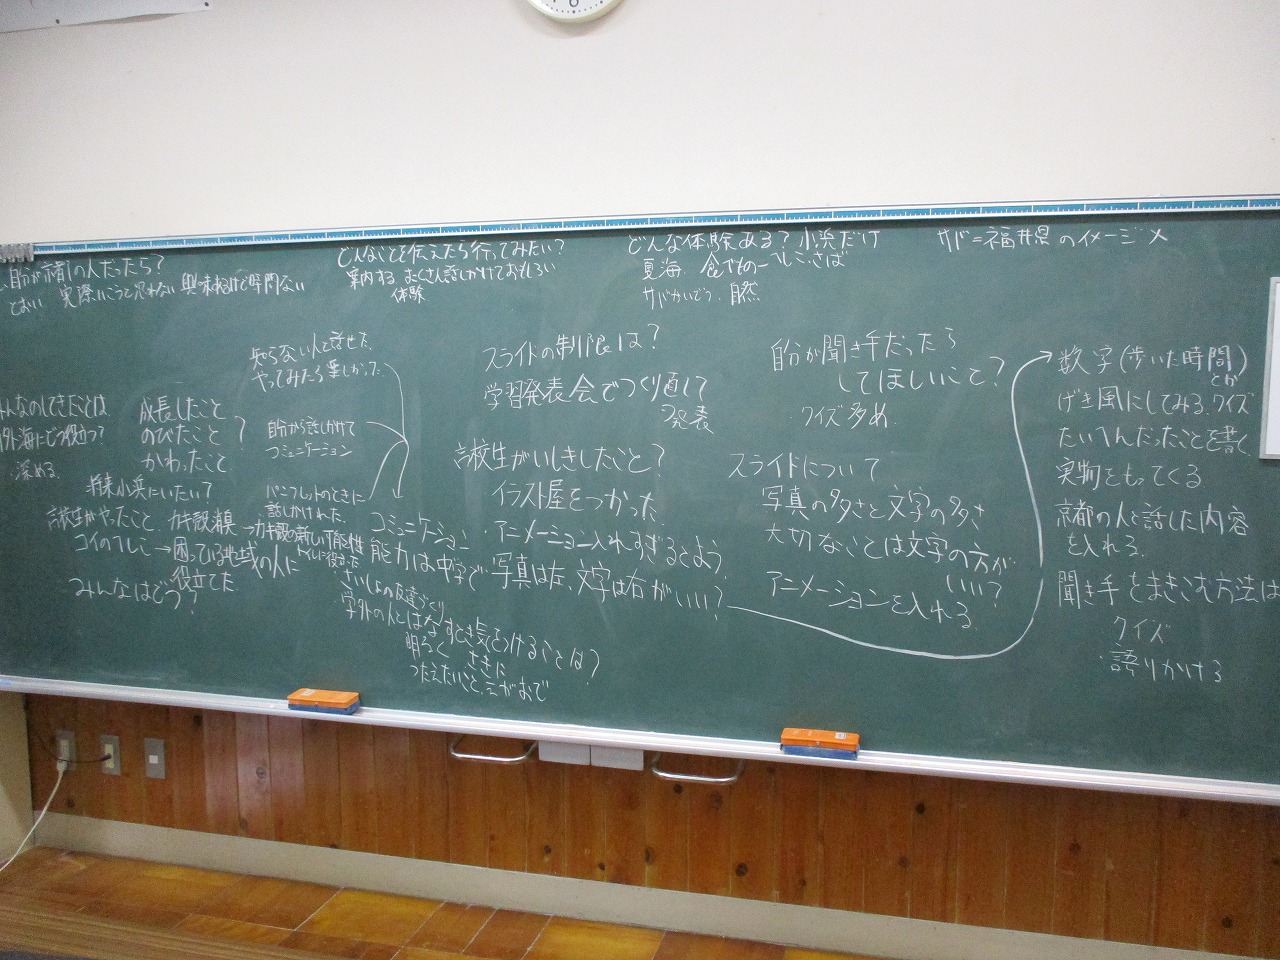 自分が の人だったら?
とおい 実際にこうと思わない 興味ねるけど時間ない
どんなことを伝えたら行ってみたい?
案内する たくさん話しかけておもしろい
体験
どんな体験ある?小浜だけ
夏海 食べもの―へしこ・さば
サバかいどう 自然
サバ=福井県のイメージ×
知らない人と話せた
やってみたら楽しかった
自分から話しかけて
コミュニケーション
パンフレットのときに
話しかけられた
みんなのしてきたことは
内外海にどう役立つ?
深める
成長したこと
のびたこと ?
かわったこと
将来小浜にいたい?
高校生がやったこと カキ殻 →カキ殻の新しい可能性
コイのへしこ→困っている地域の人に
役立てた
みんなはどう?
コミュニケーション
能力は中学で
さいしょの友達づくり
学外の人とはなすとき気をつけることは?
明るく さきに
つたえたいこと えがおで
スライドの制限は?
学習発表会でつくり直して
発表
高校生がいしきしたこと?
イラスト屋をつかった
アニメーション入れすぎるとよう
写真は左、文字は右がいい?
自分が聞き手だったら
してほしいこと?
クイズ多め
スライドについて
写真の多さと文字の多さ
大切なことは文字の方が
いい?
アニメーションを入れる
数字(歩いた時間)
とか
げき風にしてみる、クイズ
たいへんだったことを書く
実物をもってくる
京都の人と話した内容
を入れる
聞き手をまきこむ方法は
クイズ
語りかける